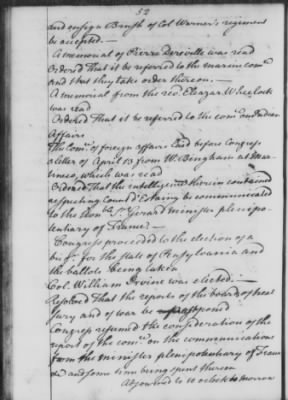 52
and ensign Brush of Col Warner's regiment
be accepted. —
A memorial of Pierre Dereville was read
Ordered That it be referred to the marine comee
and that they take order thereon. —
A memorial from the revd. Eleazar Wheelock
was read
Ordered That it be referred to the come on Indian
Affairs
The come of foreign affairs laid before Congress
a letter of April 13 from W. Bingham at Mar-
tinico, which was read
Ordered That the intelligence therein contained
respecting Count d'Estaing be communicated
to the honble Sr. Girard minister plenipo-
tentiary of France. —
Congress proceeded to the election of a
br. gl. for the state of Pensylvania and
the ballots being taken
Col. William Irvine was elected. —
Resolved That the reports of the board of trea
sury and of war be postponed
Congress resumed the consideration of the
report of the come on the communications
from the minister plenipotentiary of France
and some time being spent thereon
Adjourned to 10 oclock to morrow